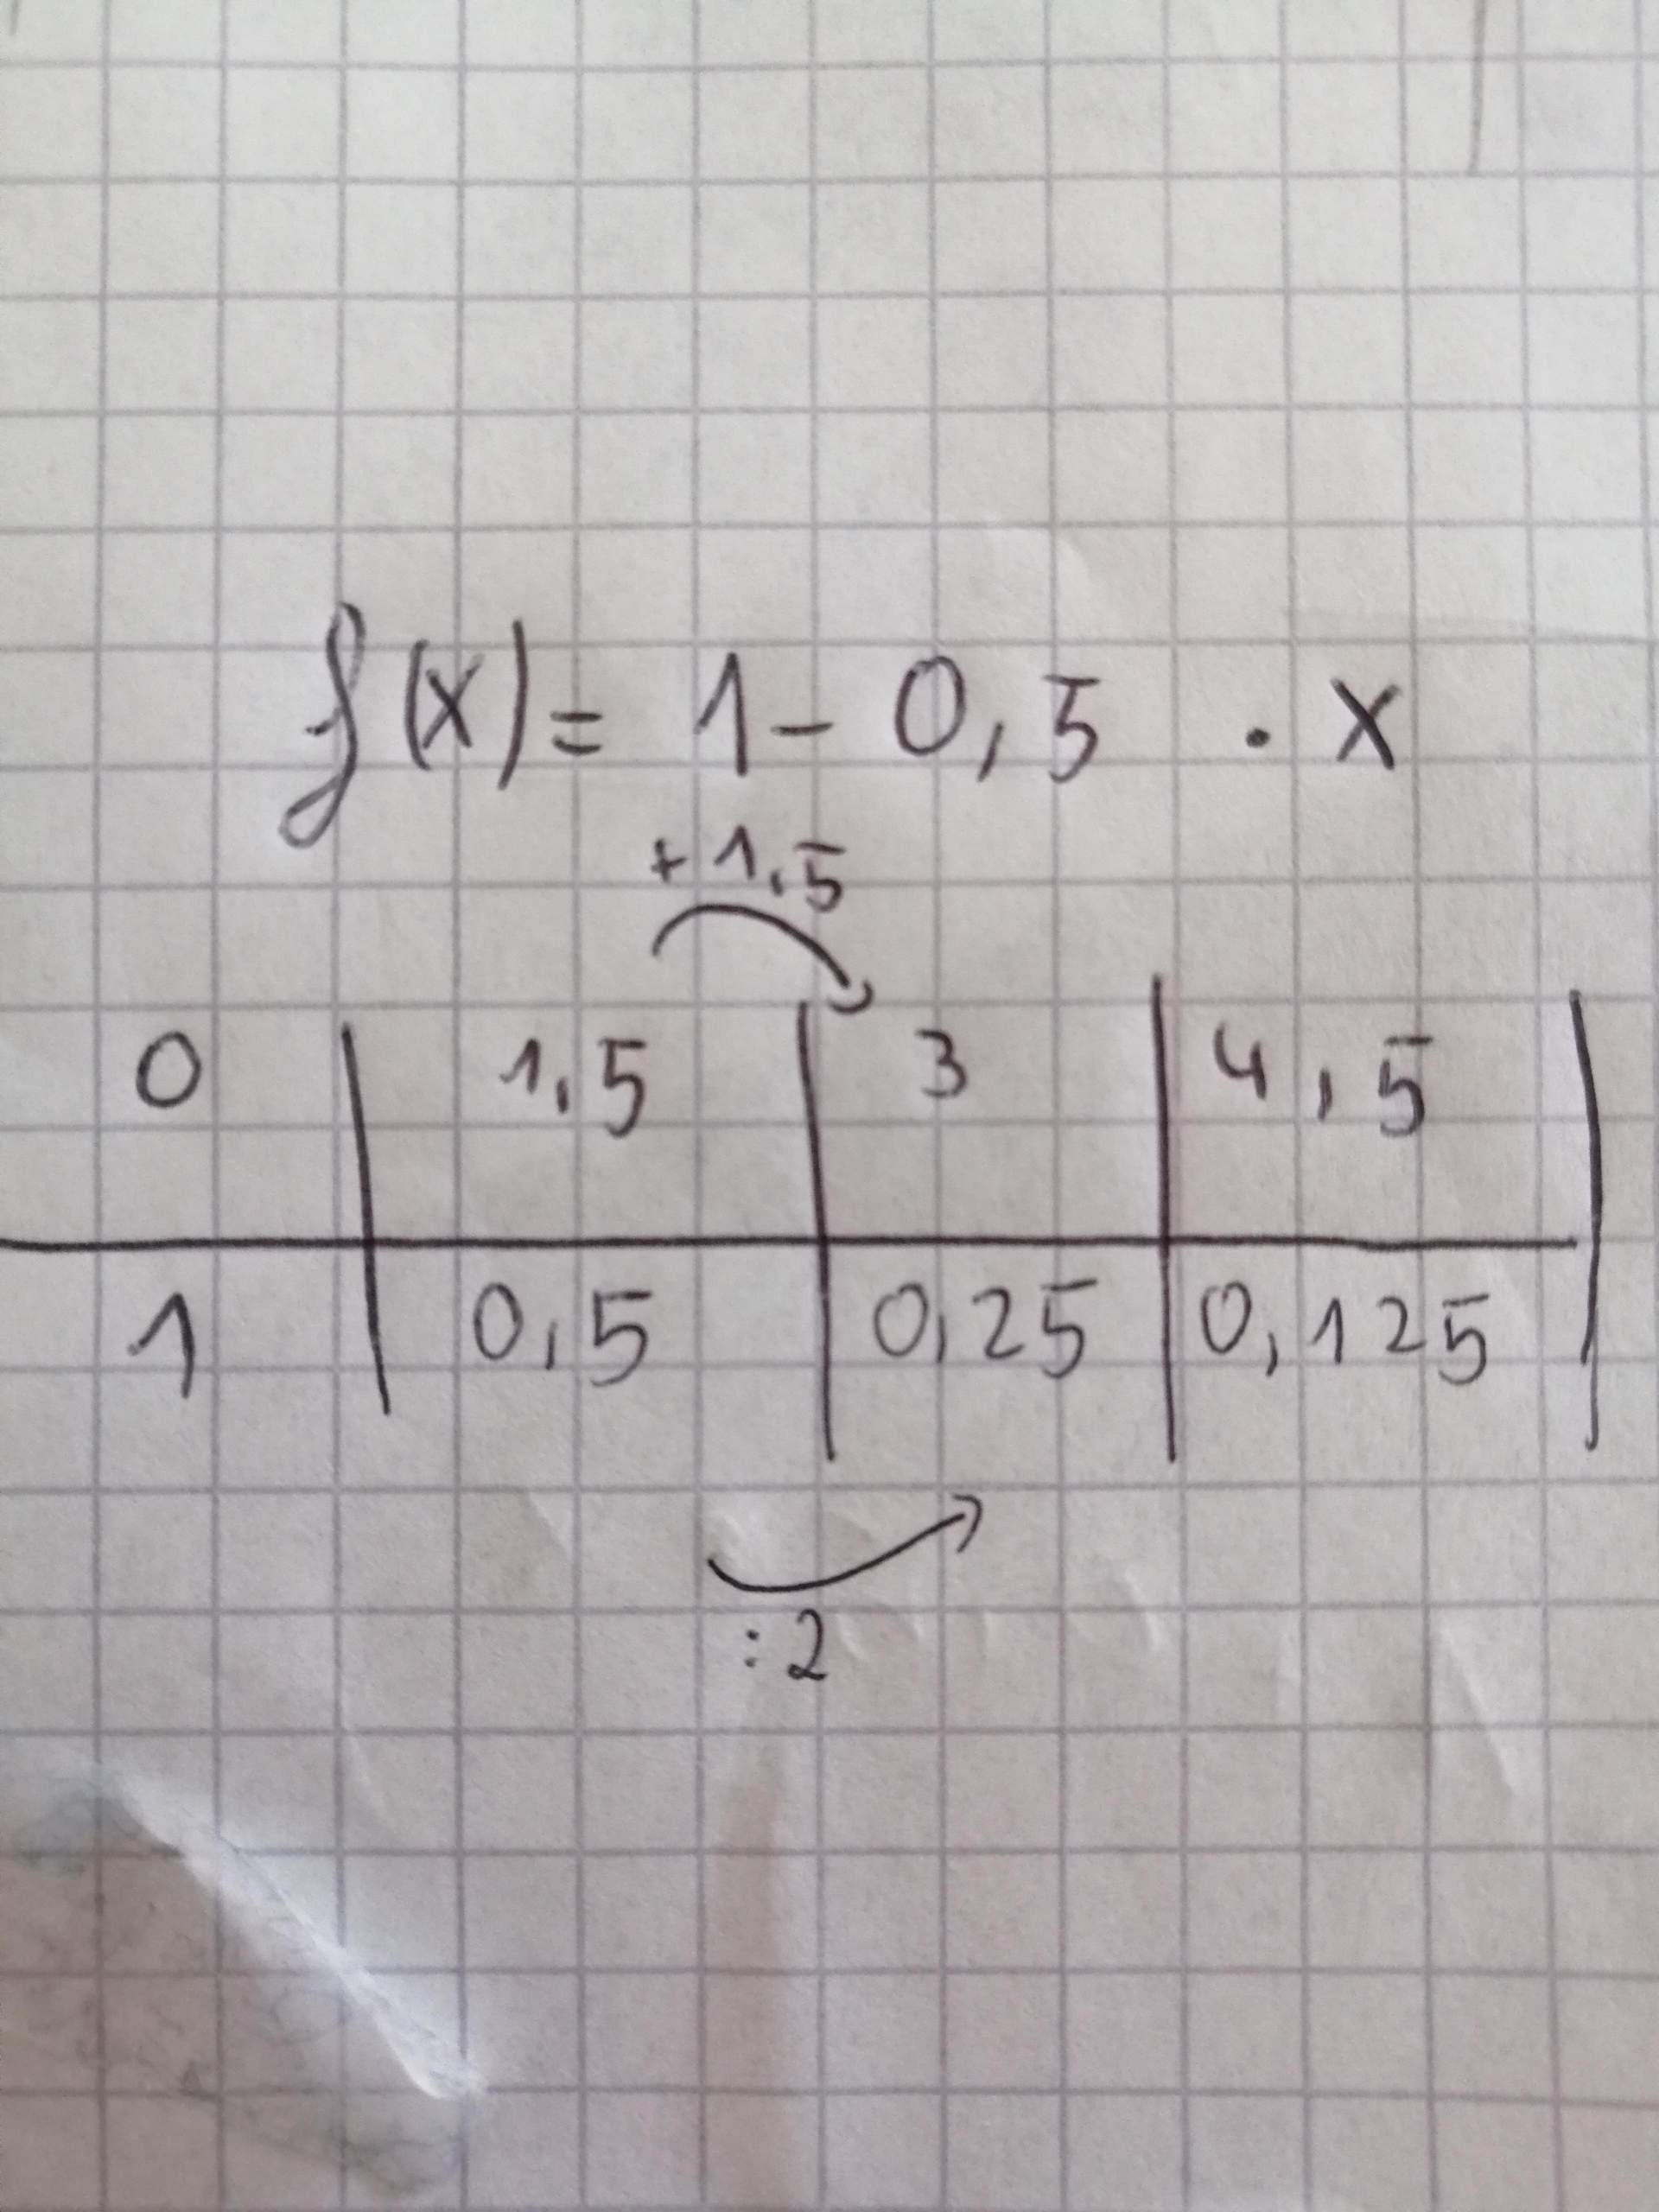 f(x) = 1 - 0,5 · x
+ 1,5
0 | 1,5 | 3 | 4,5 |
1 | 0,5 | 0,25 | 0,125 |
: 2